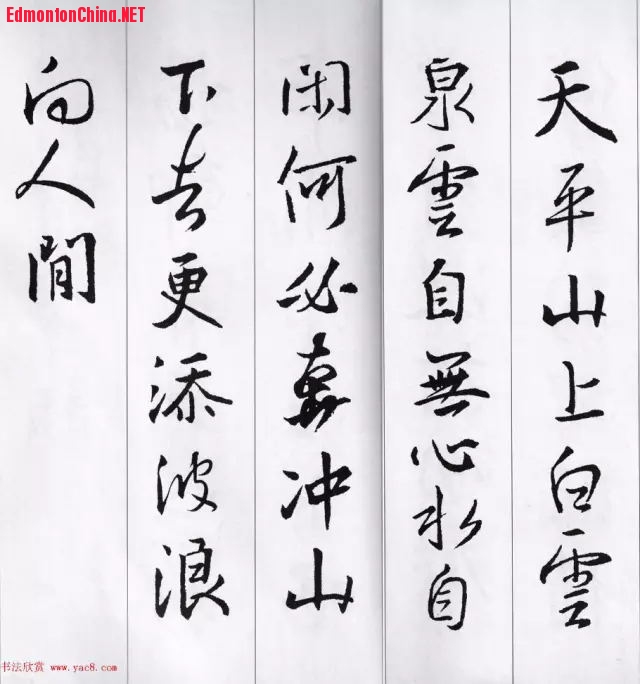 EdmontonChina.NET
天平山上白雲
泉雲自無心水自
閑何必奔冲山
下去更添波浪
向人間
书法欣赏 www.yac8.com